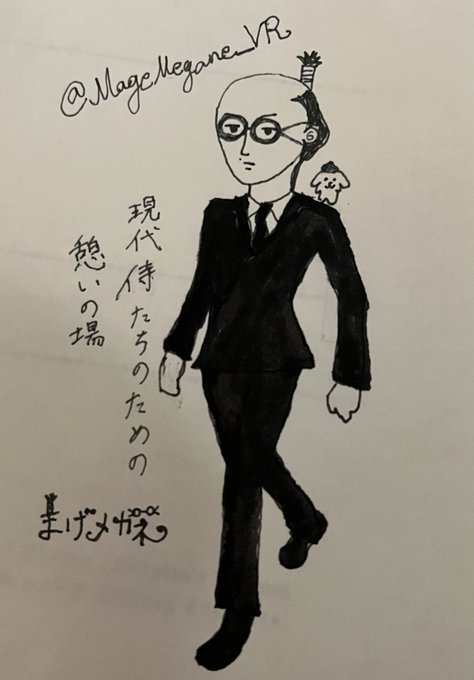 @MageMegane_VR
現代侍たちのための
憩いの場
まげメガネ